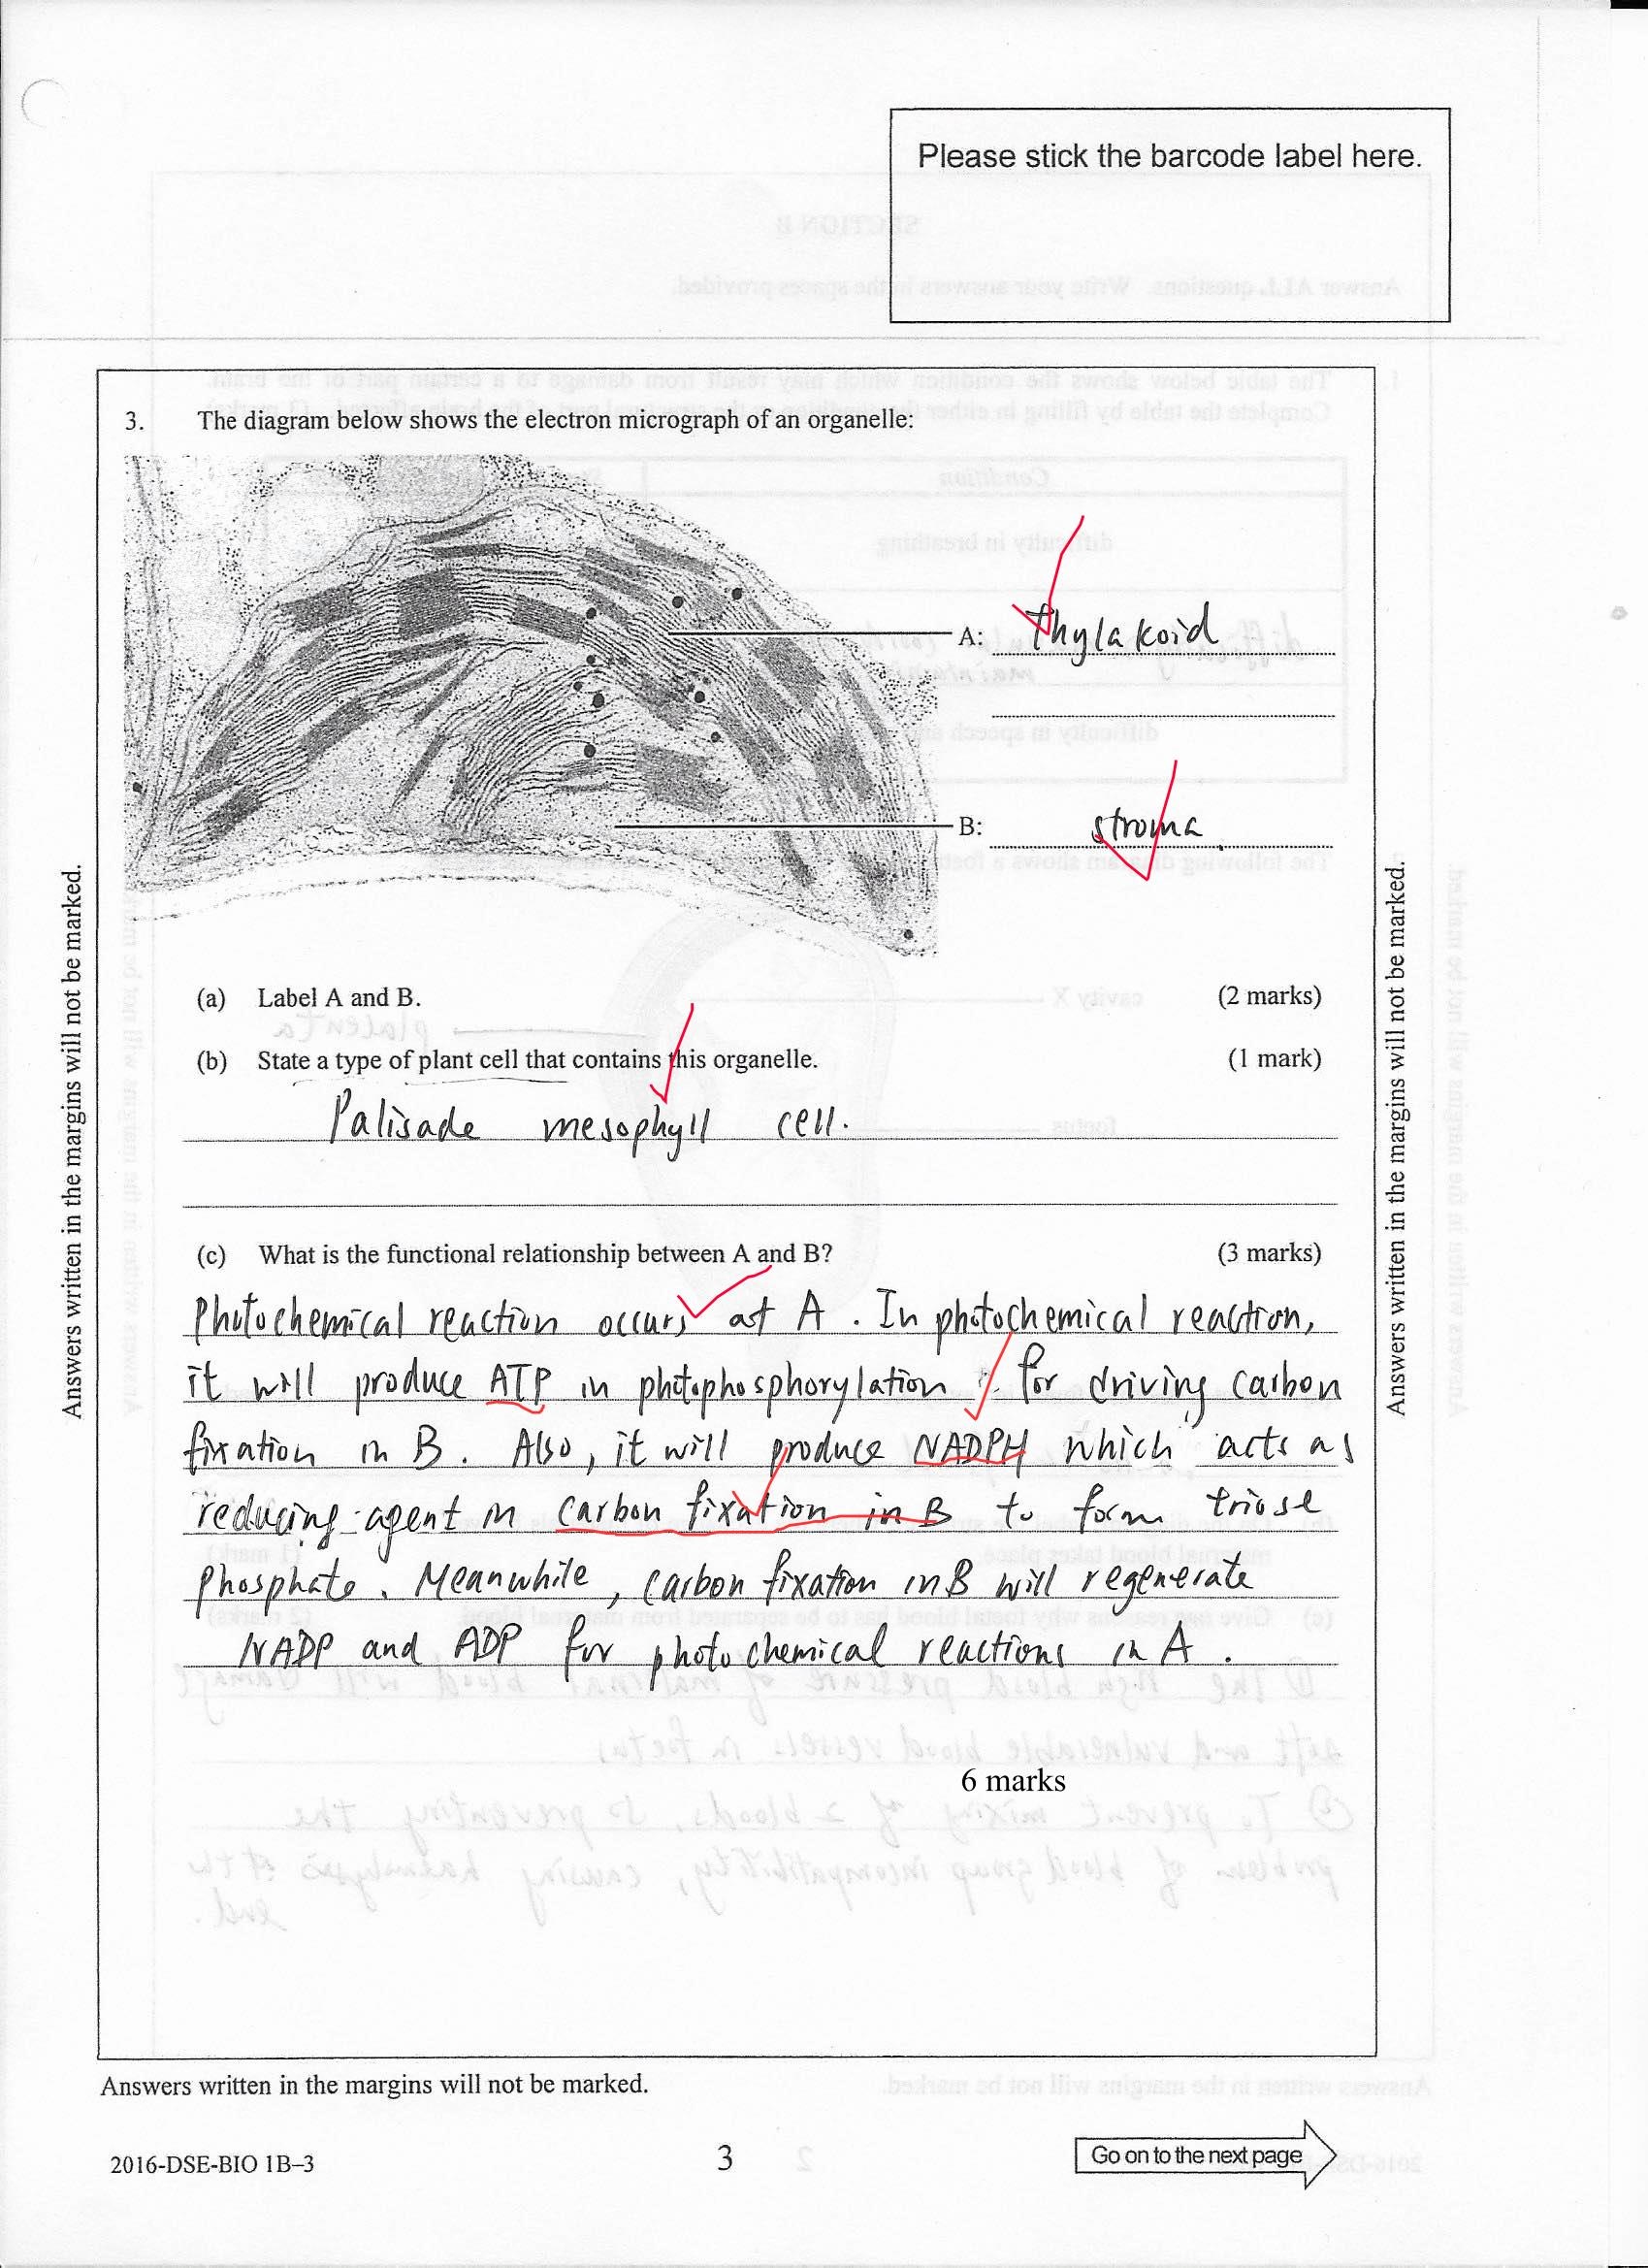 Please stick the barcode label here.
3. The diagram below shows the electron micrograph of an organelle:
A: thylakoid
B: stroma
(a) Label A and B. (2 marks)
(b) State a type of plant cell that contains this organelle. (1 mark)
Palisade mesophyll cell.
(c) What is the functional relationship between A and B? (3 marks)
Photochemical reaction occurs at A. In photochemical reaction,
it will produce ATP in photophosphorylation for driving carbon
fixation in B. Also, it will produce NADPH which acts as
reducing agent in carbon fixation in B to form triose
phosphate. Meanwhile, carbon fixation in B will regenerate
NADP and ADP for photochemical reactions in A.
6 marks
Answers written in the margins will not be marked.
Answers written in the margins will not be marked.
Answers written in the margins will not be marked.
2016-DSE-BIO 1B–3
3
Go on to the next page